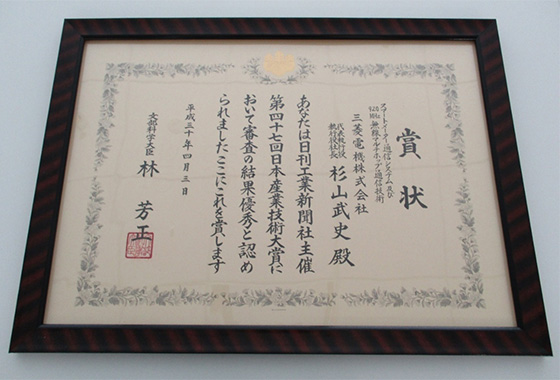 賞状
スマートメーター通信システム及び
920MHz無線マルチホップ通信技術
三菱電機株式会社
代表執行役
執行役社長
杉山武史殿
あなたは日刊工業新聞社主催
第四十七回日本産業技術大賞に
おいて審査の結果優秀と認め
られましたここにこれを賞します
平成三十年四月三日
文部科学大臣
林芳正